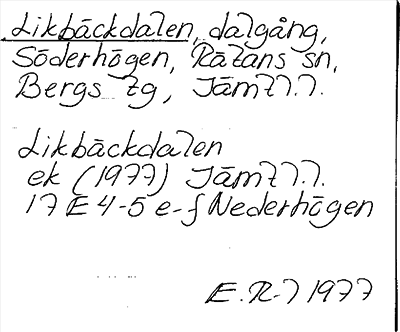 Likbäckdalen, dalgång,
Söderhögen, Rätans sn,
Bergs tg, Jämtl.
Likbäckdalen
ek (1977) Jämtl.
17 E 4-5 e-f Nederhögen
E.R-7 1977